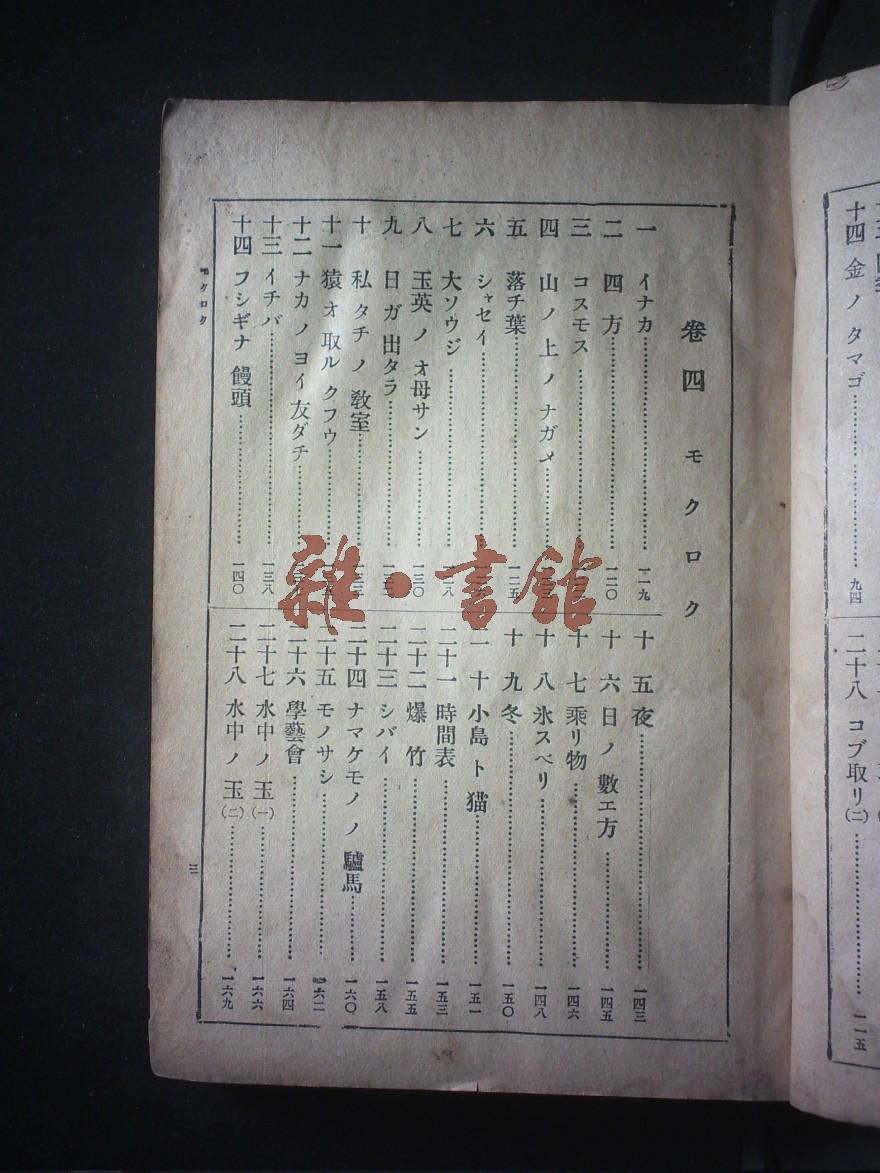 十四 金ノ タマゴ 九四
二十八 コブ取リ(二) 一一五
巻四 モクロク
一 イナカ 一一九
二 四方 一二〇
三 コスモス
四 山ノ上ノ ナガメ
五 落チ葉 一二五
六 シャセイ
七 大ソウジ
八 玉英ノ オ母サン 一三〇
九 日ガ 出タラ
十 私タチノ 教室
十一 猿オ 取ル クフウ
十二 ナカノ ヨイ 友ダチ
十三 イチバ 一三八
十四 フシギナ 饅頭 一四〇
十五 夜 一四三
十六 日ノ 數エ方 一四五
十七 乘リ物 一四六
十八 氷スベリ 一四八
十九 冬 一五〇
二十 小鳥ト 猫 一五一
二十一 時間表 一五三
二十二 爆竹 一五五
二十三 シバイ 一五八
二十四 ナマケモノノ 驢馬 一六〇
二十五 モノサシ 一六二
二十六 學藝會 一六四
二十七 水中ノ 玉(一) 一六六
二十八 水中ノ 玉(二) 一六九
モクロク
三
雜·書舘